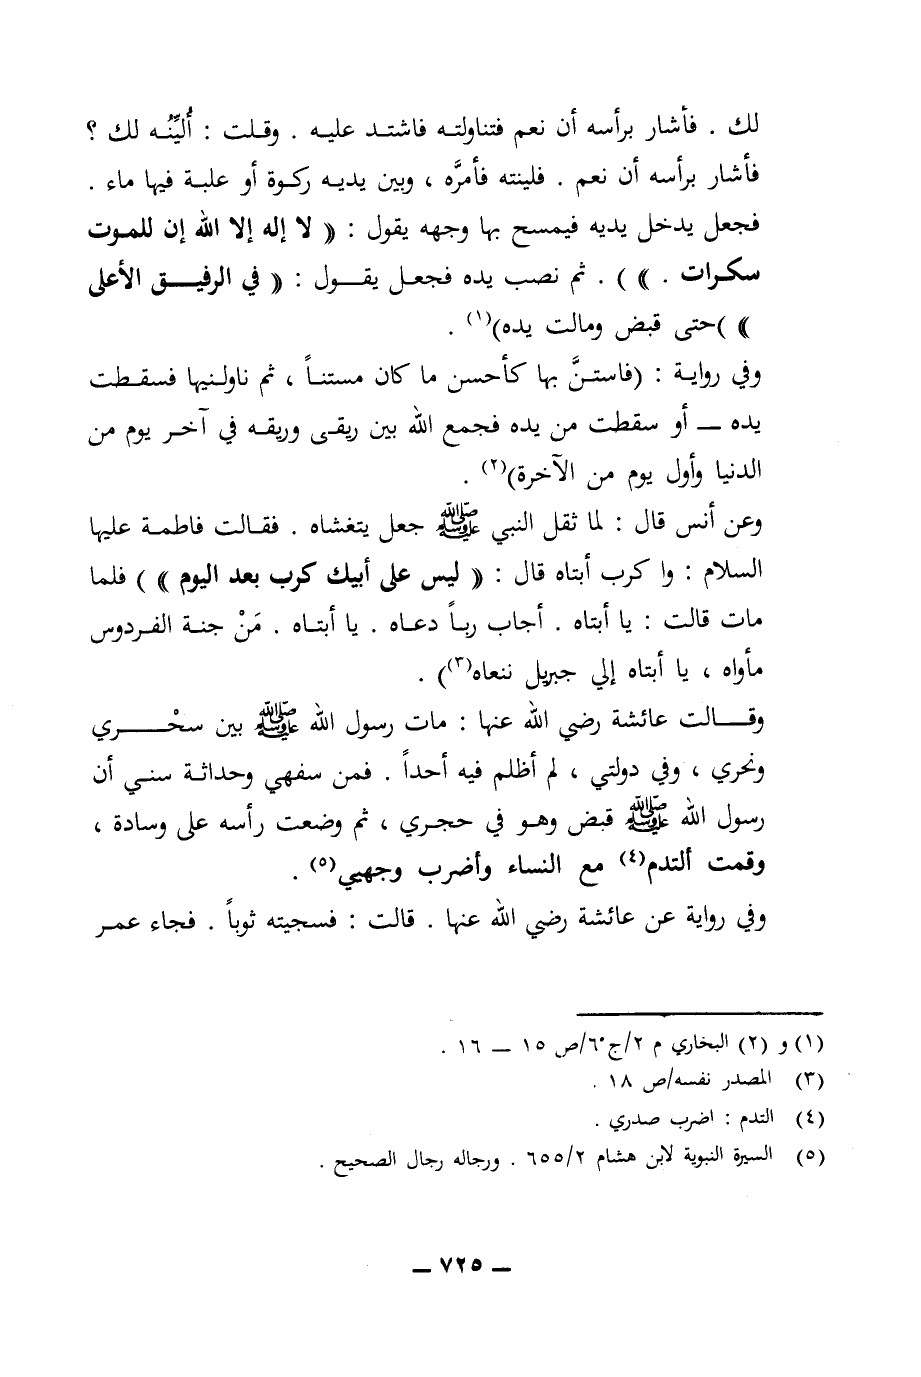 لك . فأشار برأسه أن نعم فتناولته فاشتد عليه . وقلت : أُلَيِّنُه لك ؟
فأشار برأسه أن نعم . فلينته فأمرَّه ، وبين يديه ركوة أو علبة فيها ماء .
فجعل يدخل يديه فيمسح بها وجهه يقول : (( لا إله إلا الله إن للموت
سكرات . )) ) . ثم نصب يده فجعل يقول : (( في الرفيق الأعلى
)) )حتى قبض ومالت يده)(١) .
وفي رواية : (فاستنَّ بها كأحسن ما كان مستناً ، ثم ناولنيها فسقطت
يده — أو سقطت من يده فجمع الله بين ريقى وريقه في آخر يوم من
الدنيا وأول يوم من الآخرة)(٢) .
وعن أنس قال : لما ثقل النبي ﷺ جعل يتغشاه . فقالت فاطمة عليها
السلام : وا كرب أبتاه قال : (( ليس على أبيك كرب بعد اليوم )) ) فلما
مات قالت : يا أبتاه . أجاب رباً دعاه . يا أبتاه . مَنْ جنة الفردوس
مأواه ، يا أبتاه إلي جبريل ننعاه(٣)) .
وقالت عائشة رضي الله عنها : مات رسول الله ﷺ بين سحْري
ونحري ، وفي دولتي ، لم أظلم فيه أحداً . فمن سفهي وحداثة سني أن
رسول الله ﷺ قبض وهو في حجري ، ثم وضعت رأسه على وسادة ،
وقمت ألتدم(٤) مع النساء وأضرب وجهيي(٥) .
وفي رواية عن عائشة رضي الله عنها . قالت : فسجيته ثوباً . فجاء عمر
(١) و (٢) البخاري م ٢/ج ٦/ص ١٥ — ١٦ .
(٣) المصدر نفسه/ص ١٨ .
(٤) التدم : اضرب صدري .
(٥) السيرة النبوية لابن هشام ٦٥٥/٢ . ورجاله رجال الصحيح .
— ٧٢٥ —